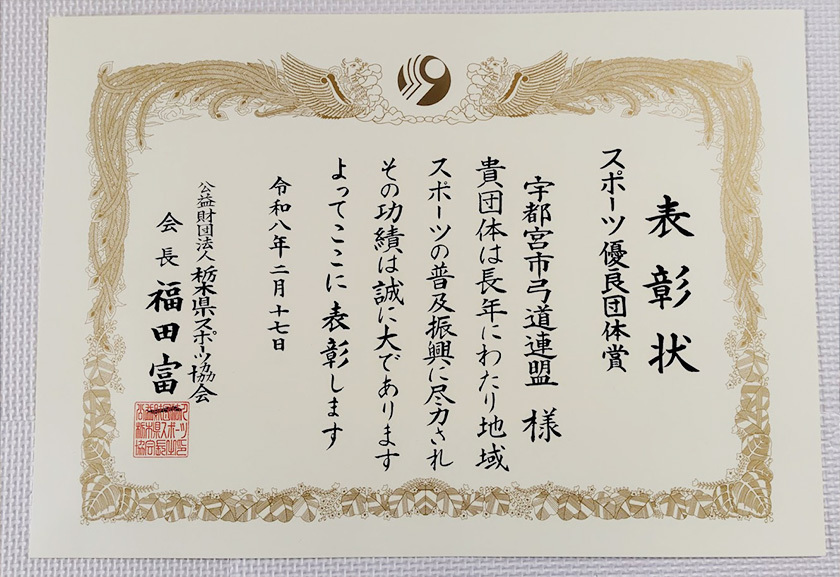 表彰状
スポーツ優良団体賞
宇都宮市弓道連盟 様
貴団体は長年にわたり地域
スポーツの普及振興に尽力され
その功績は誠に大であります
よってここに表彰します
令和八年二月十七日
公益財団法人 栃木県スポーツ協会
会長 福田富